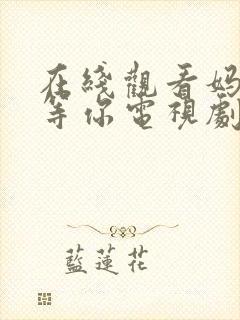 在綫觀看媽
等你電視劇
藍蓮花